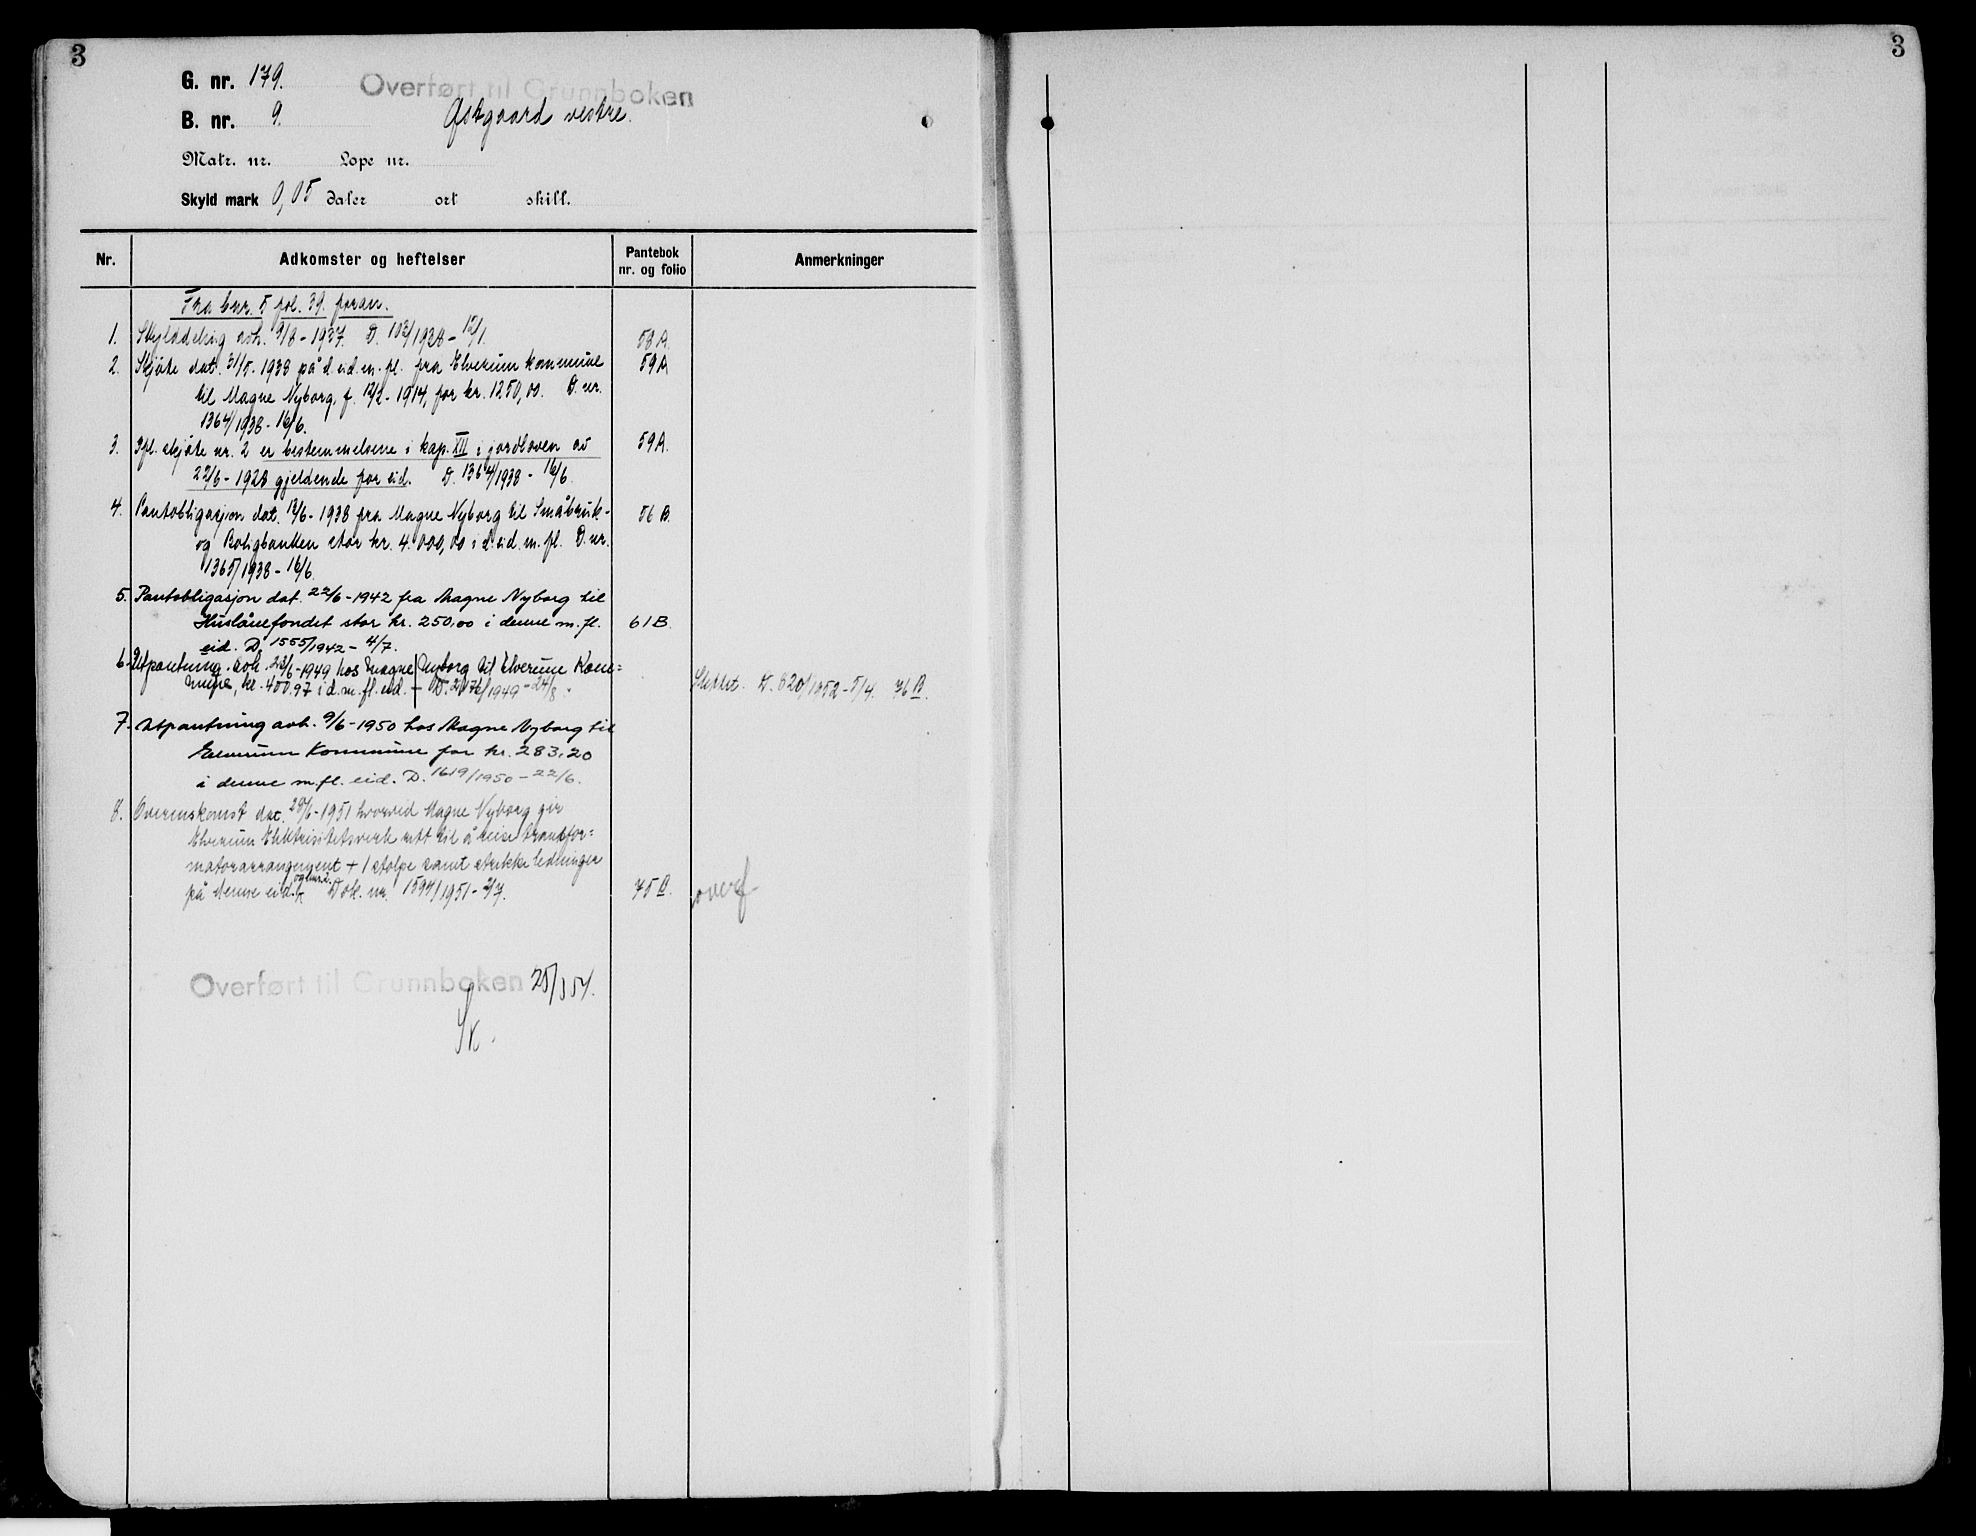 3
3
G. nr. 179.
Overført til Grunnboken
B. nr. 9.
Østgaard vestre.
Matr. nr. Lope nr.
Skyld mark 0,05 daler ort skill.
Nr. Adkomster og heftelser Pantebok nr. og folio Anmerkninger
Fra bnr. 5 fol. 39 foran.
1. Skylddeling avh. 9/8-1937. D. 102/1938-12/1. 58A.
2. Skjøte dat. 31/5-1938 på d. eid. m. fl. fra Elverum kommune 59A
til Magne Nyborg, f. 12/2-1914, for kr. 1250,00. D. nr.
1364/1938-16/6.
3. Ifl. skjøte nr. 2 er bestemmelsene i kap. XII i jordloven av 59A.
22/6-1928 gjeldende for eid. D. 1364/1938-16/6.
4. Pantobligasjon dat. 13/6-1938 fra Magne Nyborg til Småbruk- 56B.
og Boligbanken stor kr. 4.000,00 i d. eid. m. fl. D. nr.
1365/1938-16/6.
5. Pantobligasjon dat. 22/6-1942 fra Magne Nyborg til
Huslånefondet stor kr. 250,00 i denne m. fl. 61B.
eid. D. 1555/1942-4/7.
6. Utpantning avh. 23/6-1949 hos Magne Nyborg til Elverum Kom=
mune, kr. 400.97 i d. m. fl. eid. - D. 2172/1949-24/8. Slettet. D. 820/1952-5/4. 76B.
7. Utpantning avh. 9/6-1950 hos Magne Nyborg til
Elverum Kommune for kr. 283,20
i denne m. fl. eid. D. 1619/1950-22/6.
8. Overenskomst dat. 28/6-1951 hvorved Magne Nyborg gir
Elverum Elektrisitetsverk rett til å reise transfor=
matorarrangement + 1 stolpe samt strekke ledninger
på denne eid. Dok. nr. 1594/1951-2/7. 75B. overf
Overført til Grunnboken 25/3 54.
Sk.